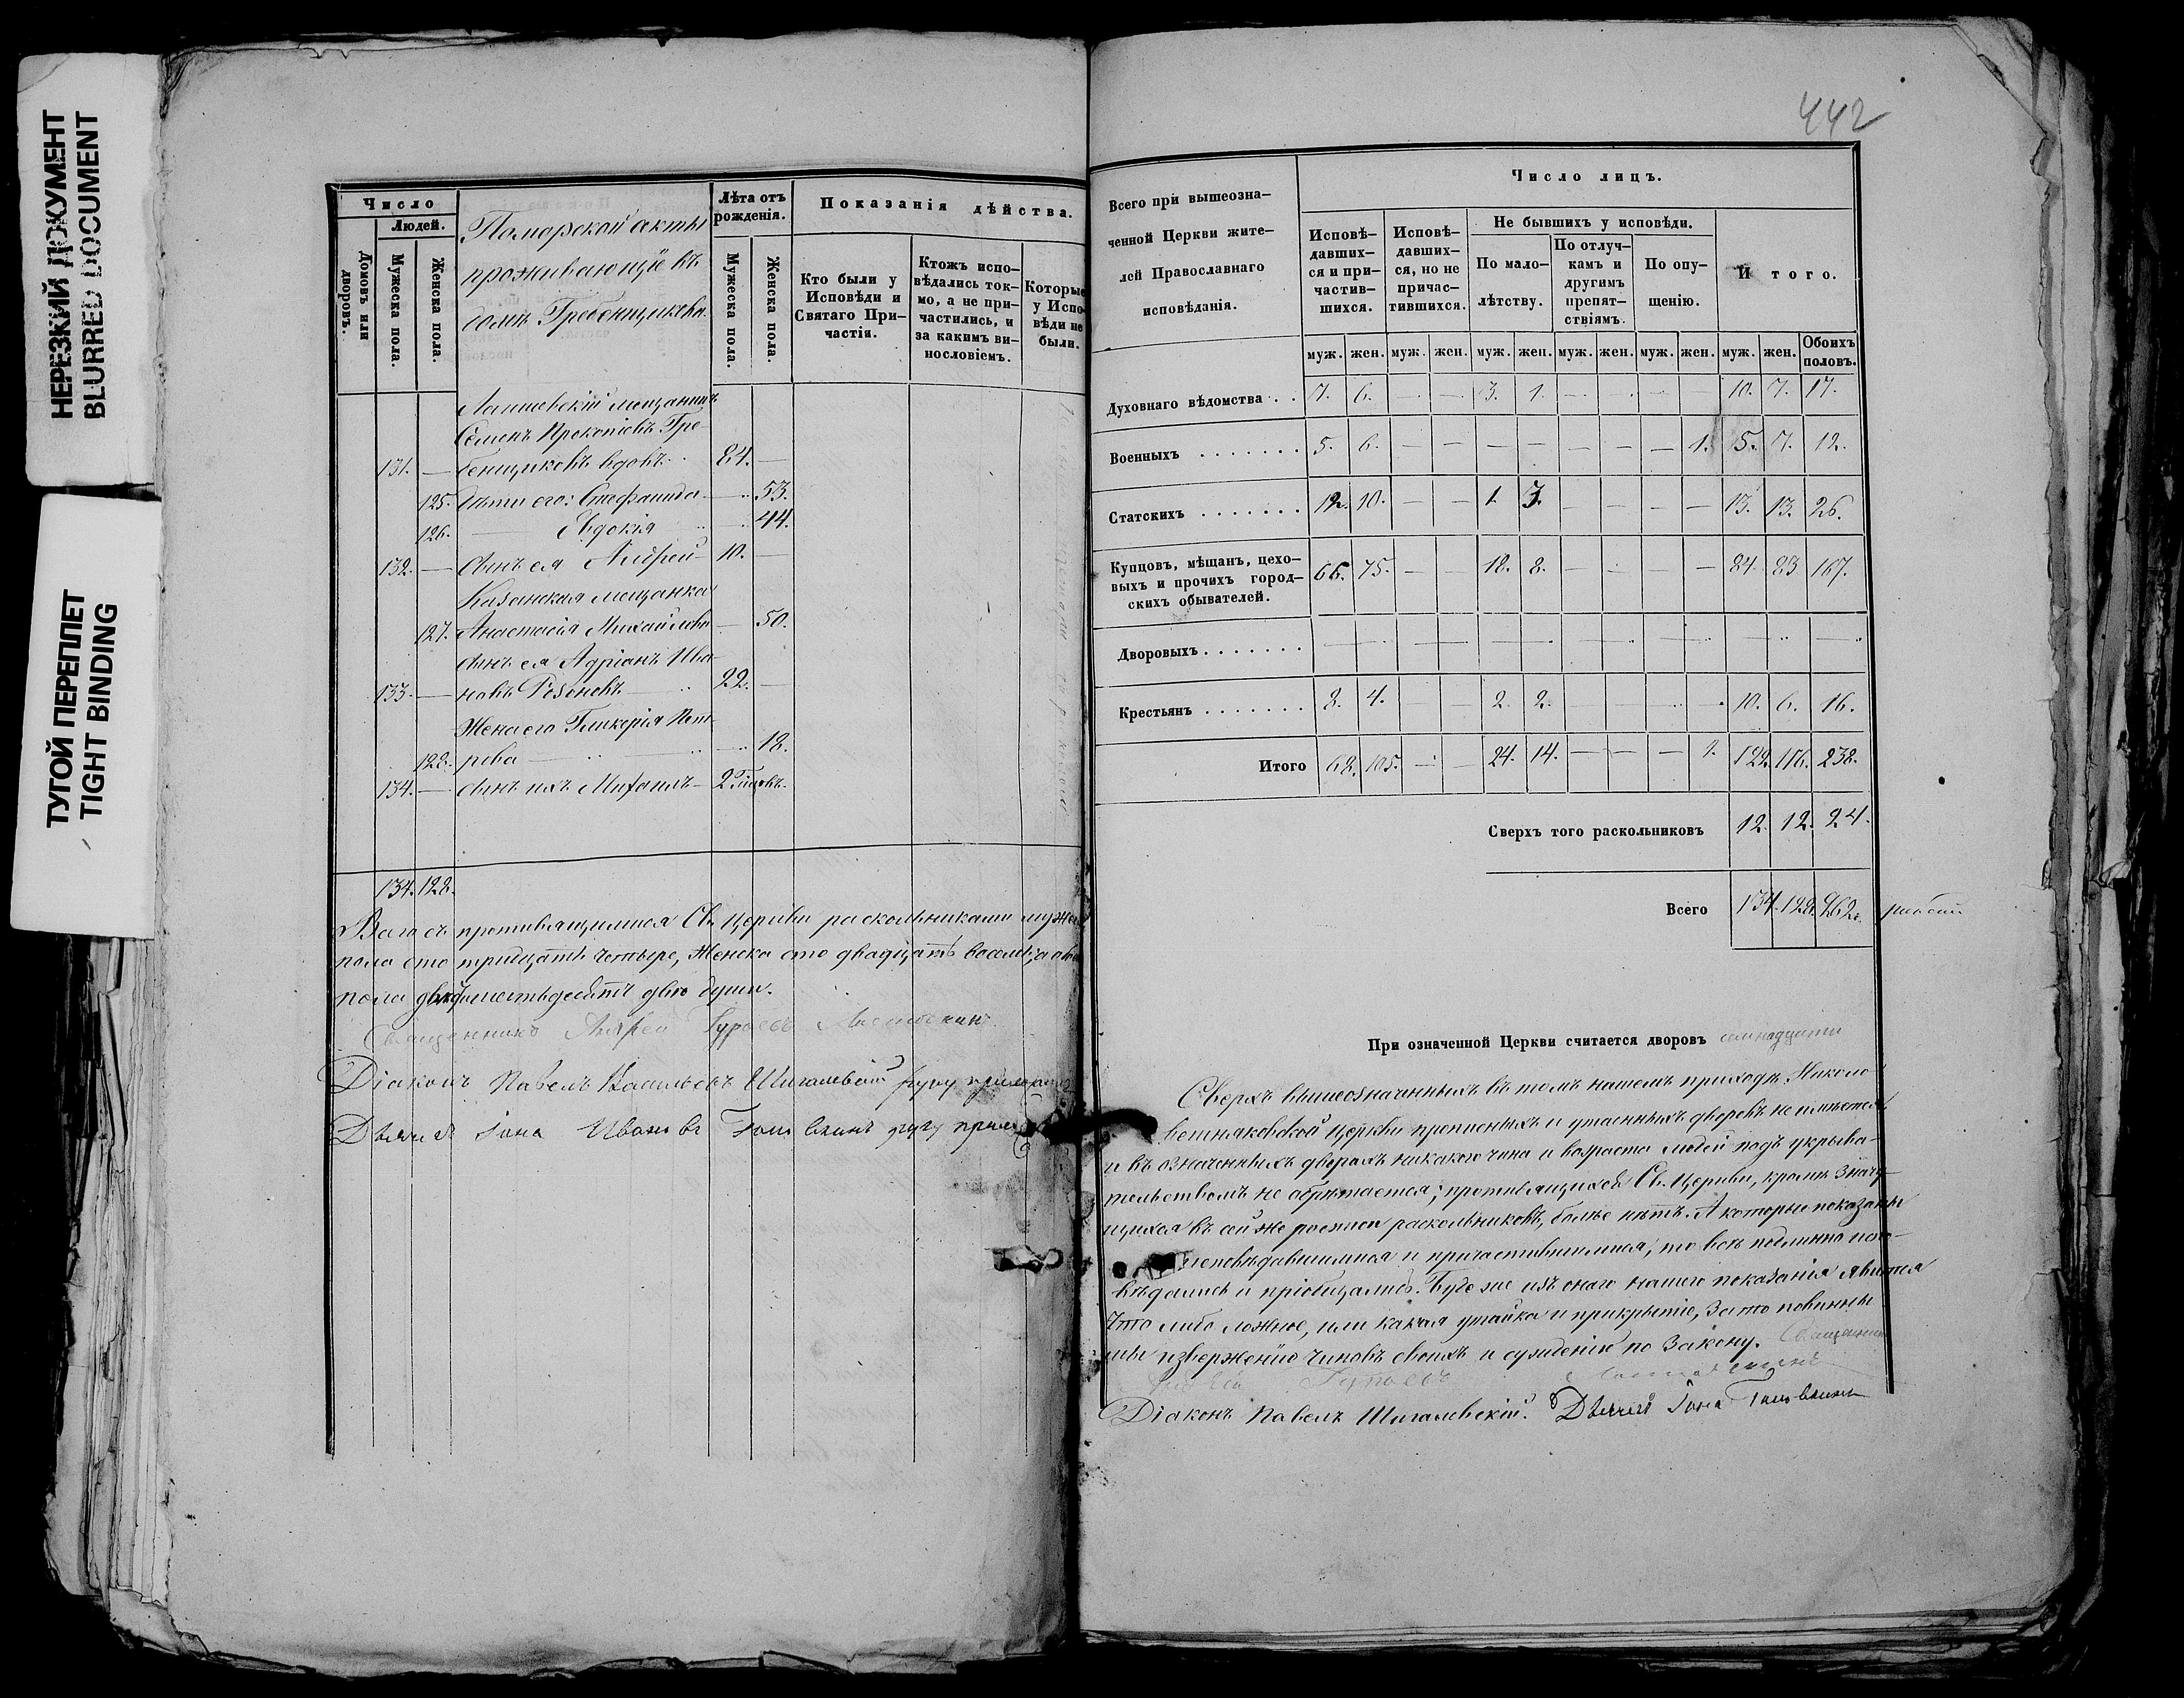 НЕРЕЗКИЙ ДОКУМЕНТ
BLURRED DOCUMENT
ТУГОЙ ПЕРЕПЛЕТ
TIGHT BINDING
Число
Людей.
Домовъ или дворовъ.
Мужеска пола.
Женска пола.
Поморской секты
проживающіе въ
домѣ Гребенщикова
Лѣта отъ рожденія.
Мужеска пола.
Женска пола.
Показанія дѣйства.
Кто были у Исповѣди и Святаго Причастія.
Ктожъ исповѣдались токмо, а не причастились, и за какимъ винословіемъ.
Которые у Исповѣди не были.
Лаишевскій мещанинъ
Семенъ Прокопіевъ Гре-
131. — бенщиковъ вдовъ 84. —
125. Дѣти его: Стефанида — 53.
126. — Евдокія 44.
132. — Сынъ ея Андрей 10. —
Казанская мещанка
127. Анастасія Михайлова — 50.
сынъ ея Адріанъ Ива-
133. — новъ 22. —
Жена его Гликерія Пет-
128. рова — 18.
134. — сынъ ихъ Михаилъ — 2
134. 128.
Всего съ противящимися Св. Церкви раскольниками мужеска
пола сто тридцать четыре, Женска сто двадцать восемь, а
пола двѣсти шестьдесятъ двѣ души.
Священникъ Андрей Гурьевъ
Діаконъ Павелъ Васильевъ Шигалевскій руку приложилъ
Дьячекъ Іона Ивановъ руку прило
442
Всего при вышеозначенной Церкви жителей Православнаго исповѣданія.
Число лицъ.
Исповѣдавшихся и причастившихся.
Исповѣдавшихся, но не причастившихся.
Не бывшихъ у исповѣди.
По малолѣтству.
По отлучкамъ и другимъ препятствіямъ.
По опущенію.
Итого.
муж. жен. муж. жен. муж. жен. муж. жен. муж. жен. муж. жен. Обоихъ половъ.
Духовнаго вѣдомства . . 7. 6. — — 3. 1. — — — — 10. 7. 17.
Военныхъ . . . . . . . 5. 6. — — — — — — — 1. 5. 7. 12.
Статскихъ . . . . . . . 12. 10. — — 1. 3. — — — — 13. 13. 26.
Купцовъ, мѣщанъ, цеховыхъ и прочихъ городскихъ обывателей. 66. 75. — — 18. 8. — — — — 84. 83 167.
Дворовыхъ . . . . . . . — — — — — — —
Крестьянъ . . . . . . . 8. 4. — — 2. 2. 10. 6. 16.
Итого 105. — — 24. 14. — — — 122. 116. 238.
Сверхъ того раскольниковъ 12. 12. 24.
Всего 134. 128. 262.
При означенной Церкви считается дворовъ семнадцать
Сверхъ вышеозначенныхъ въ томъ нашемъ приходѣ Николо
Вешняковской Церкви прописныхъ и утаенныхъ дворовъ не имѣется,
и въ означенныхъ дворахъ никакого чина и возраста людей подъ укрыва-
тельствомъ не обрѣтается; противящихся Св. Церкви, кромѣ значу-
щихся въ сей же росписи раскольниковъ, болѣе нѣтъ. А которые показаны
исповѣдавшимися и причастившимися, то всѣ подлинно испо-
вѣдались и пріобщались. Буде же изъ онаго нашего показанія явится
что либо ложное, или какая утайка и прикрытіе, за то повинны
мы изверженію чиновъ своихъ и сужденію по закону. Священникъ
Гурьевъ
Діаконъ Павелъ Шигалевскій. Дьячекъ Іона